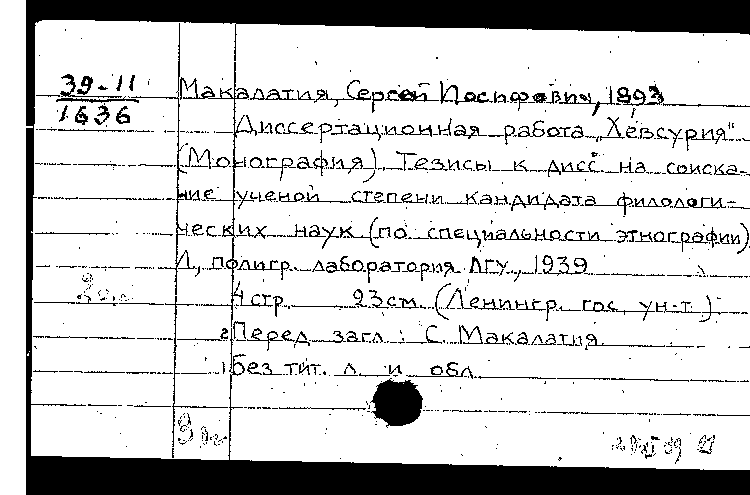 39-11
1636
Макалатия, Сергей Иосифович, 1893
Диссертационная работа „Хевсурия"
(Монография). Тезисы к дисс на соиска-
ние ученой степени кандидата филологи-
ческих наук (по специальности этнографии)
Л., полигр. лаборатория ЛГУ, 1939
4 стр. 23см. (Ленингр. гос. ун-т.)
2 Перед загл: С. Макалатия.
1 без тит. л. и обл.